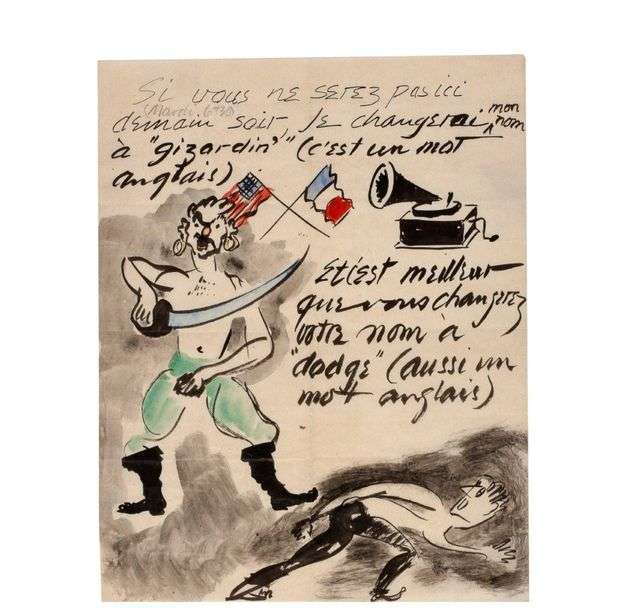 Si vous ne serez pas ici
(Mardi. 6:30)
demain soir, je changerai mon nom
à "gizardin" (c'est un mot
anglais)
Et c'est meilleur
que vous changerez
votre nom à
"dodge" (aussi un
mott anglais)